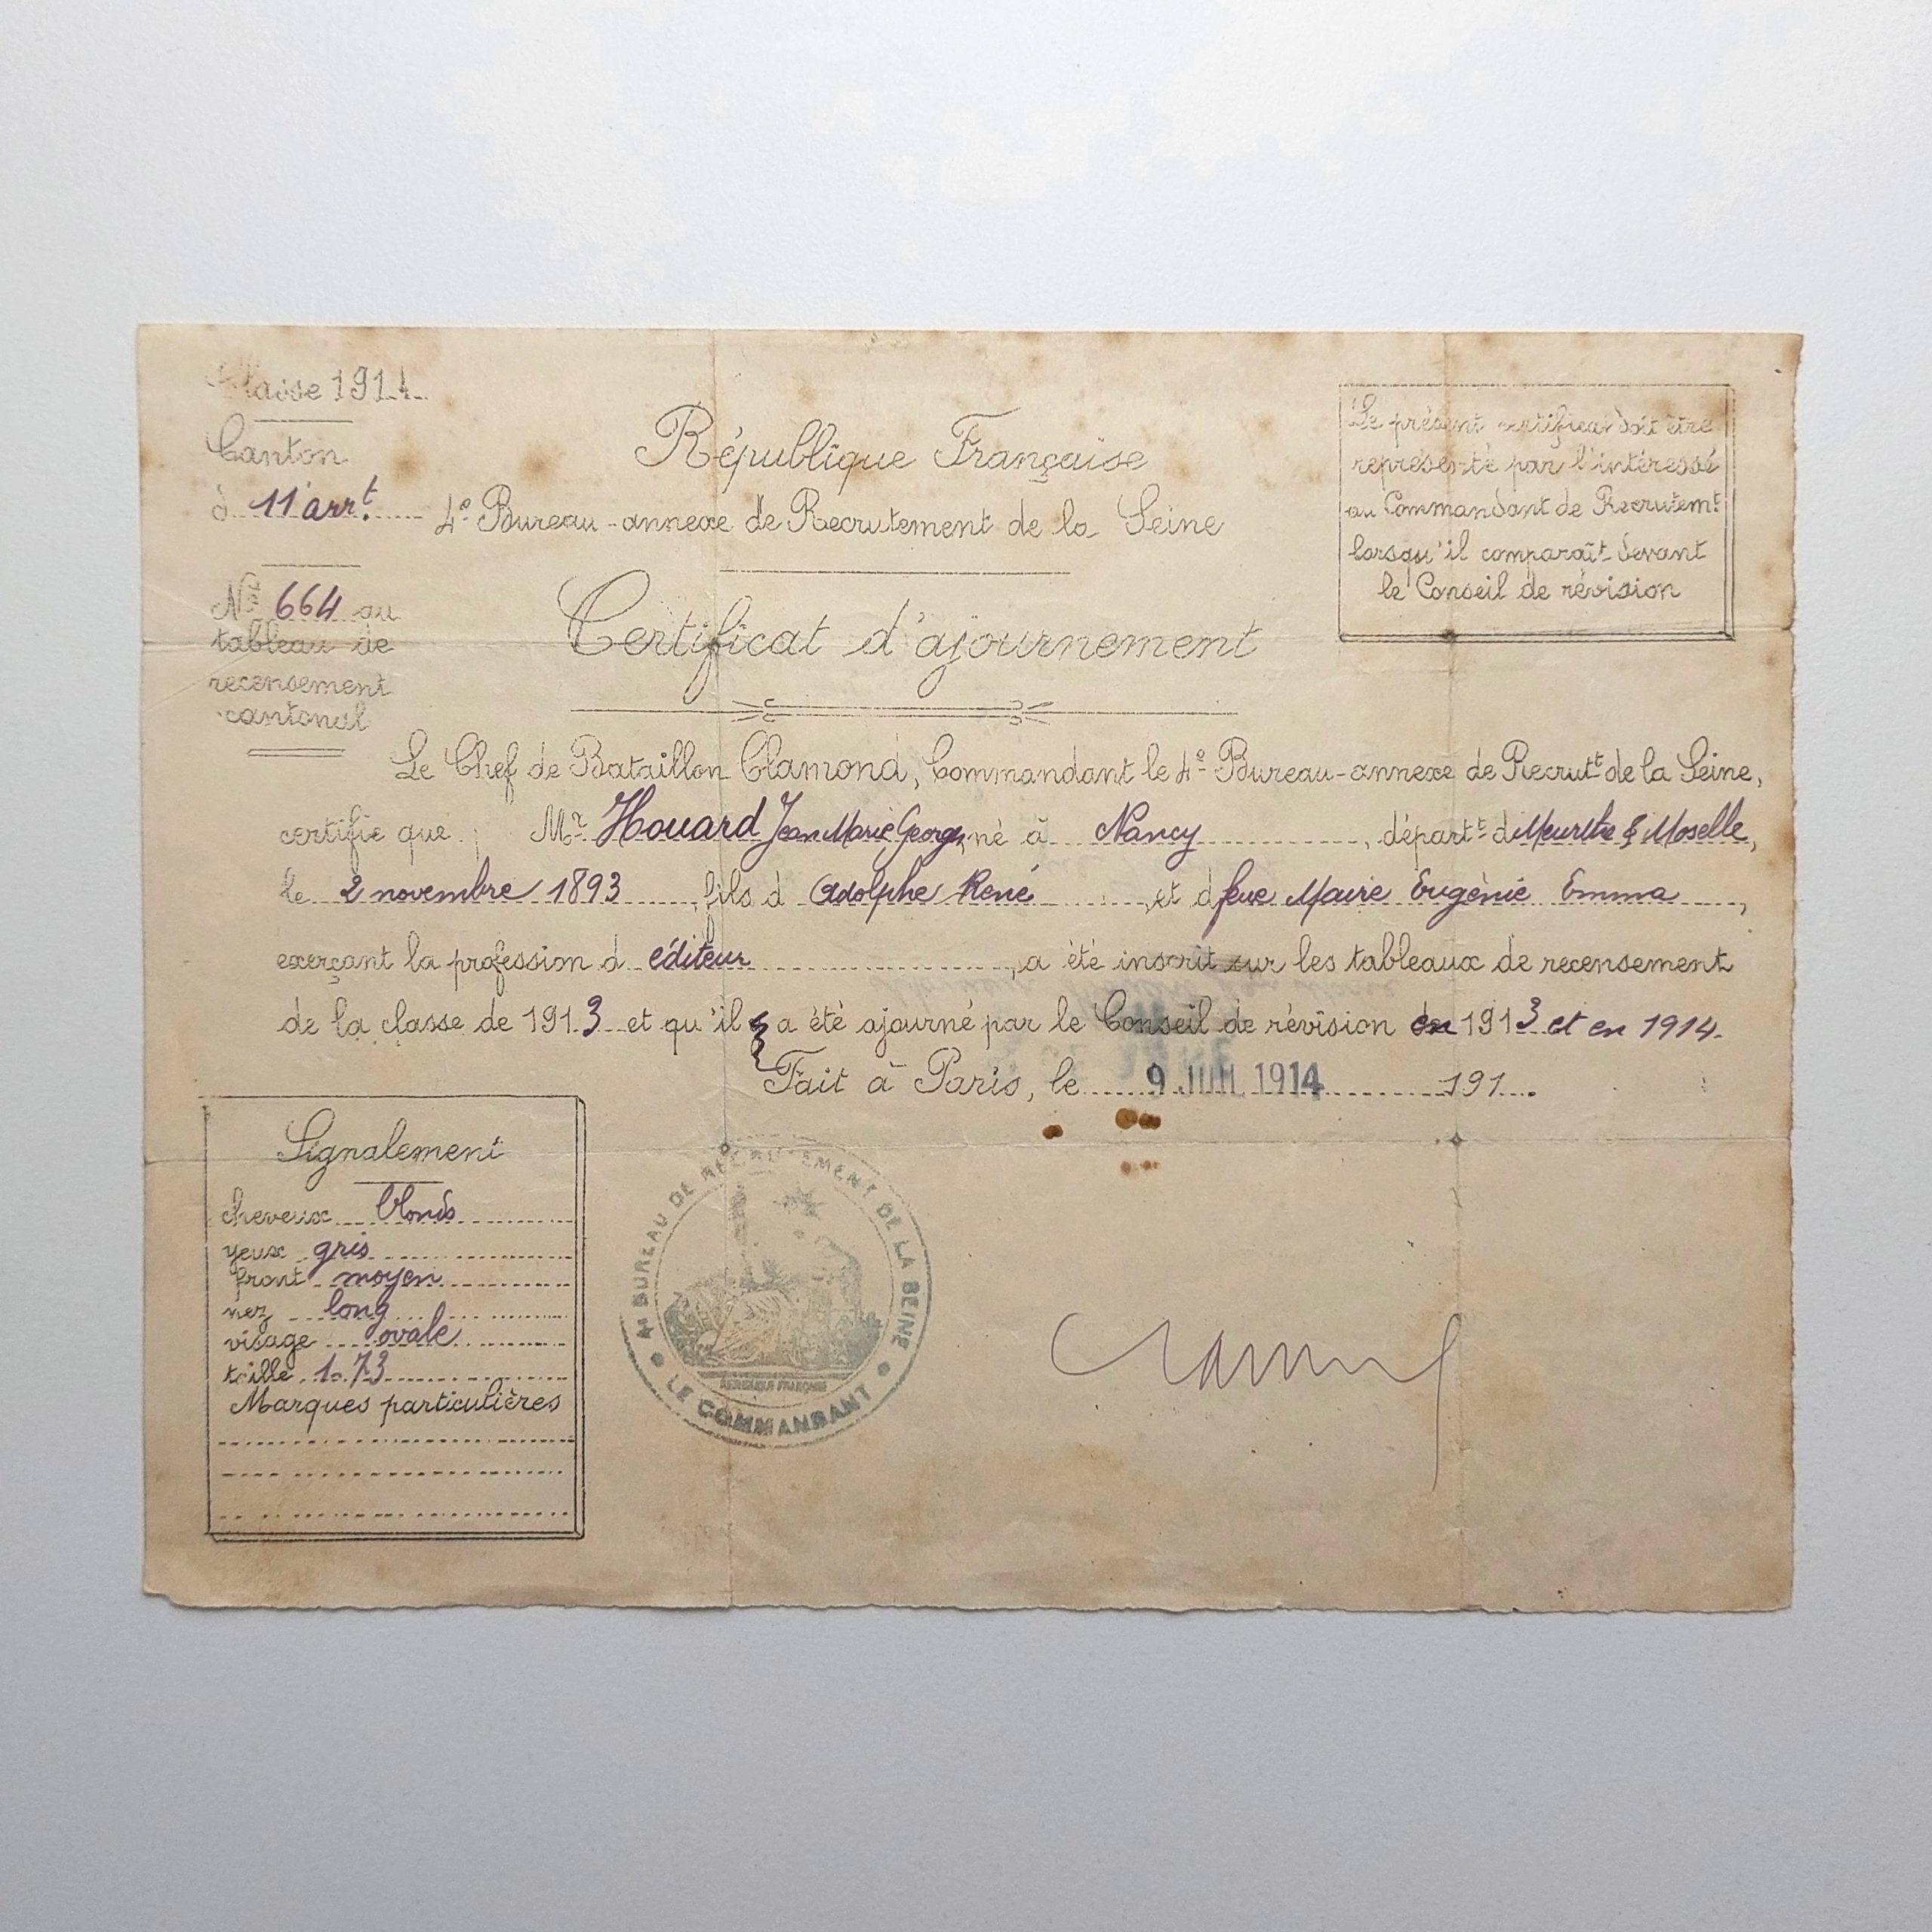 Classe 1914
Canton
d 11e arrt.
No 664 au
tableau de
recensement
cantonal
République Française
4e Bureau-annexe de Recrutement de la Seine
Certificat d'ajournement
Le présent certificat doit être
représenté par l'intéressé
au Commandant de Recrutemt
lorsqu'il comparaît devant
le Conseil de révision
Le Chef de Bataillon Clamond, Commandant le 4e Bureau-annexe de Recrutt de la Seine,
certifie que Mr Houard Jean Marie Georges, né à Nancy, départt d Meurthe & Moselle,
le 2 novembre 1893, fils d Adolphe René, et d feue Maire Eugénie Emma,
exerçant la profession d éditeur, a été inscrit sur les tableaux de recensement
de la classe de 1913 et qu'il a été ajourné par le Conseil de révision en 1913 et en 1914.
Fait à Paris, le 9 JUIL 1914 191
Signalement
cheveux blonds
yeux gris
front moyen
nez long
visage ovale
taille 1.73
Marques particulières
4e BUREAU DE RECRUTEMENT DE LA SEINE
RÉPUBLIQUE FRANÇAISE
LE COMMANDANT